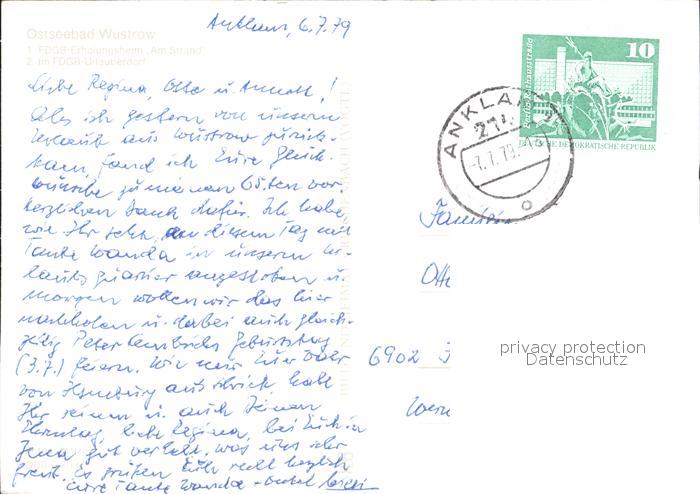 Anklam, 6.7.79
Ostseebad Wustrow
1. FDGB-Erholungsheim "Am Strand"
2. Im FDGB-Urlauberdorf
Liebe Regina, Otto u.
Als ich gestern von unserem
Urlaub aus Wustrow zurück-
kam, fand ich Eure Glück-
wünsche zu meinem 65ten vor.
Herzlichen Dank dafür. Ich habe,
wie Ihr seht, an diesem Tag mit
Tante Wanda in unserem Ur-
laubsquartier angestoßen u.
morgen wollen wir das hier
nachholen u. dabei auch gleich-
zeitig Peter Geburtstag
(3.7.) feiern. Wie nur
von Hamburg aus schrieb habt
Ihr seinen u. auch Deinen
Ehrentag, liebe Regina, bei Euch in
Jena gut verlebt, was uns sehr
freut. Es grüßen Euch recht herzlich
Eure Tante Wanda + Onkel
10
Berlin, Rathausstraße
DEUTSCHE DEMOKRATISCHE REPUBLIK
ANKLAM 1
-7.7.79
Familie
Otto
6902 J
privacy protection
Datenschutz